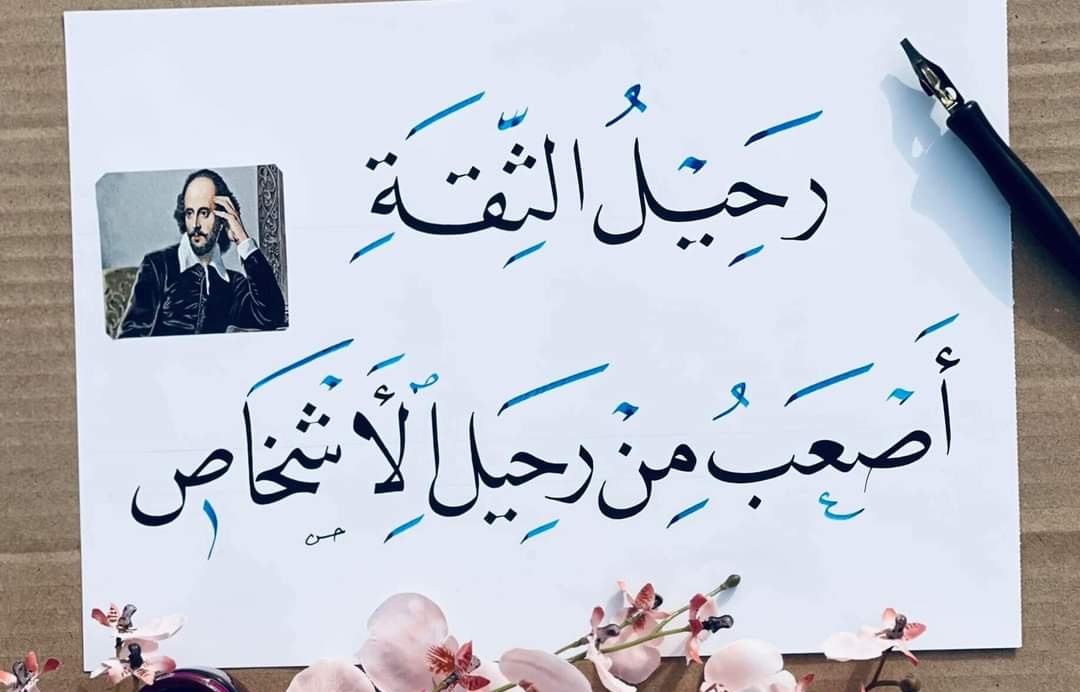 رَحِيْلُ الثِّقَةِ
أَصْعَبُ مِنْ رَحِيَلِ ٱلْأَشْخَاصِ
حسن